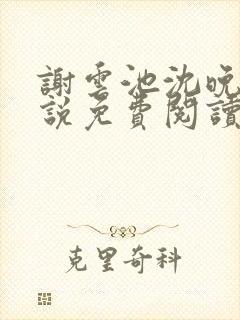 謝雲池沈晚
說免費閱讀
克里奇科